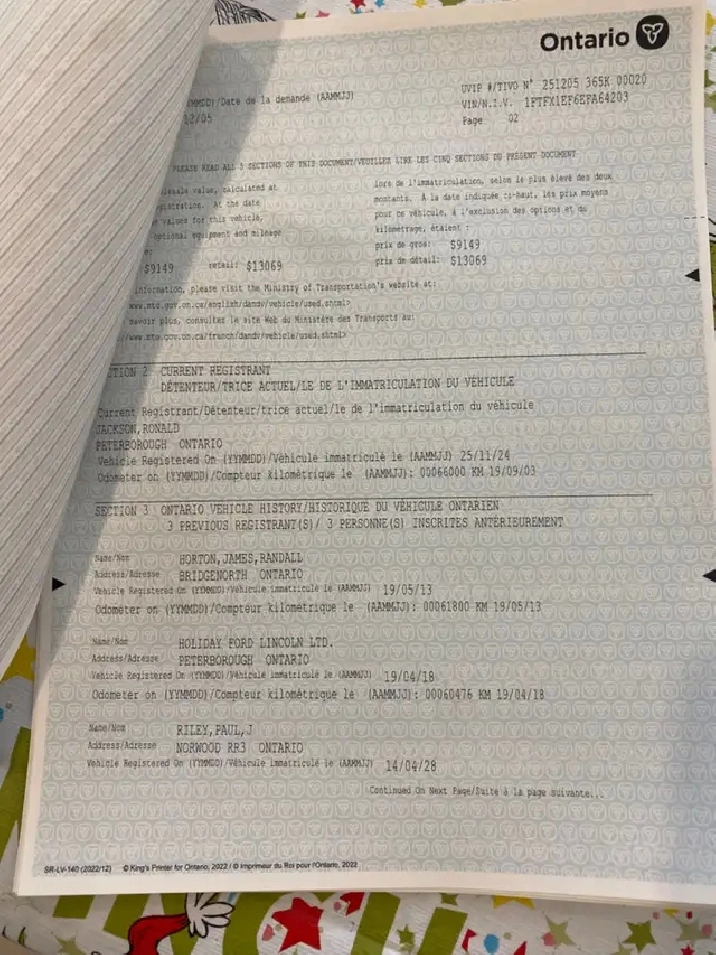 Ontario
UVIP #/TIVO N° 251205 365K 00020
VIN/N.I.V. 1FTFX1EF6EFA64203
Page 02
MMDD)/Date de la demande (AAMMJJ)
12/05
PLEASE READ ALL 5 SECTIONS OF THIS DOCUMENT/VEUILLEZ LIRE LES CINQ SECTIONS DU PRÉSENT DOCUMENT
value, calculated at
At the date
values for this vehicle,
optional equipment and mileage
$9149 retail: $13069
lors de l'immatriculation, selon le plus élevé des deux
montants. À la date indiquée ci-haut, les prix moyens
pour ce véhicule, à l'exclusion des options et du
kilométrage, étaient :
prix de gros: $9149
prix de détail: $13069
information, please visit the Ministry of Transportation's website at:
www.mto.gov.on.ca/english/dandv/vehicle/used.shtml>
savoir plus, consulter le site Web du Ministère des Transports au:
/www.mto.gov.on.ca/french/dandv/vehicle/used.shtml>
CTION 2 CURRENT REGISTRANT
DÉTENTEUR/TRICE ACTUEL/LE DE L'IMMATRICULATION DU VÉHICULE
Current Registrant/Détenteur/trice actuel/le de l'immatriculation du véhicule
JACKSON,RONALD
PETERBOROUGH ONTARIO
Vehicle Registered On (YYMMDD)/Véhicule immatriculé le (AAMMJJ) 25/11/24
Odometer on (YYMMDD)/Compteur kilométrique le (AAMMJJ): 00066000 KM 19/09/03
SECTION 3 ONTARIO VEHICLE HISTORY/HISTORIQUE DU VÉHICULE ONTARIEN
3 PREVIOUS REGISTRANT(S)/ 3 PERSONNE(S) INSCRITES ANTÉRIEUREMENT
Name/Nom HORTON,JAMES,RANDALL
Address/Adresse BRIDGENORTH ONTARIO
Vehicle Registered On (YYMMDD)/Véhicule immatriculé le (AAMMJJ) 19/05/13
Odometer on (YYMMDD)/Compteur kilométrique le (AAMMJJ): 00061800 KM 19/05/13
Name/Nom HOLIDAY FORD LINCOLN LTD.
Address/Adresse PETERBOROUGH ONTARIO
Vehicle Registered On (YYMMDD)/Véhicule immatriculé le (AAMMJJ) 19/04/18
Odometer on (YYMMDD)/Compteur kilométrique le (AAMMJJ): 00060476 KM 19/04/18
Name/Nom RILEY,PAUL,J
Address/Adresse NORWOOD RR3 ONTARIO
Vehicle Registered On (YYMMDD)/Véhicule immatriculé le (AAMMJJ) 14/04/28
Continued On Next Page/Suite à la page suivante...
SR-LV-140 (2022/12) © King's Printer for Ontario, 2022 / © Imprimeur du Roi pour l'Ontario, 2022